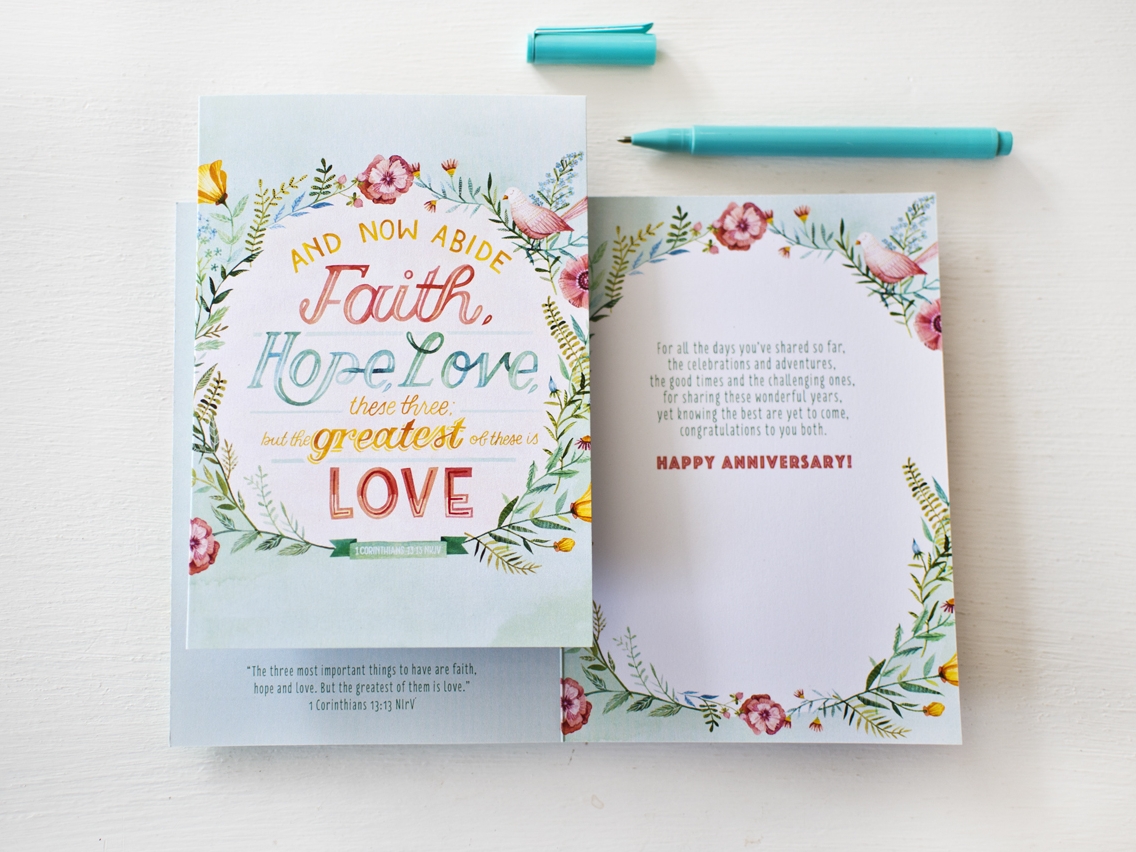 AND NOW ABIDE
Faith,
Hope, Love,
these three:
but the greatest of these is
LOVE
1 CORINTHIANS 13:13 NKJV
"The three most important things to have are faith,
hope and love. But the greatest of them is love."
1 Corinthians 13:13 NIrV
For all the days you've shared so far,
the celebrations and adventures,
the good times and the challenging ones,
for sharing these wonderful years,
yet knowing the best are yet to come,
congratulations to you both.
HAPPY ANNIVERSARY!